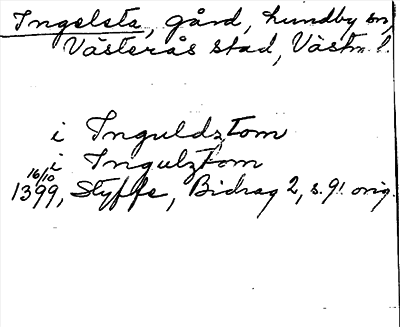 Ingelsta, gård, Lundby sn,
Västerås stad, Västm. l.
i Inguldztom
i Ingulztom
16/10
1399, Styffe, Bidrag 2, s. 91 orig.